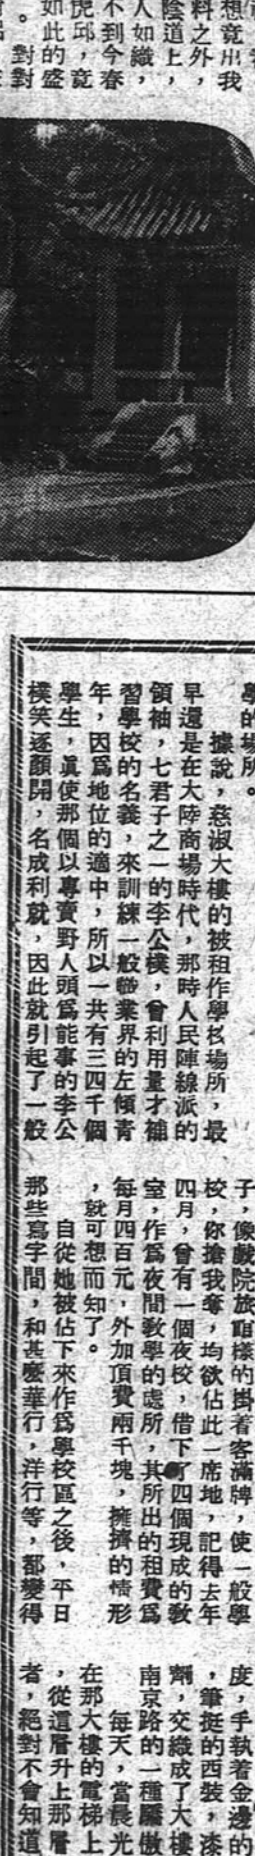 想竟出我
料之外，
陰道上，
人如織，
不到今春
虎邱，竟
如此的盛
。對對
學的場所。
據說，慈淑大樓的被租作學校場所，最
早還是在大陸商場時代，那時人民陣線派的
領袖，七君子之一的李公樸，曾利用量才補
習學校的名義，來訓練一般職業界的左傾青
年，因爲地位的適中，所以一共有三四千個
學生，眞使那個以專賣野人頭爲能事的李公
樸笑逐顏開，名成利就，因此就引起了一般
子，像戲院旅館樣的掛着客滿牌，使一般學
校，你搶我奪，均欲佔此一席地，記得去年
四月，曾有一個夜校，借下了四個現成的敎
室，作爲夜間敎學的處所，其所出的租費爲
每月四百元，外加頂費兩千塊，擁擠的情形
，就可想而知了。
自從她被佔下來作爲學校區之後，平日
那些寫字間，和甚麼華行，洋行等，都變得
度，手執着金邊的
，筆挺的西裝，漆
，交織成了大樓
南京路的一種驕傲
每天，當晨光
在那大樓的電梯上
，從這層升上那層
者，絕對不會知道